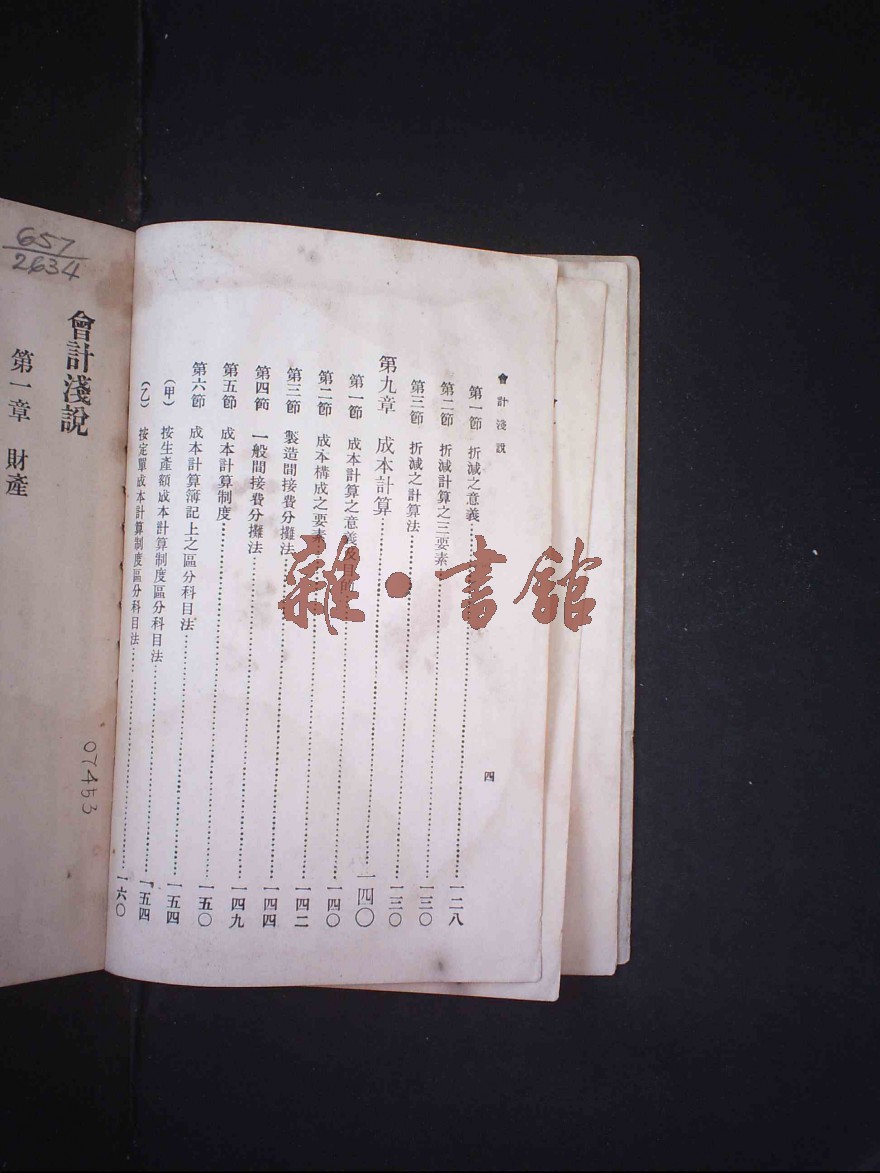 會計淺說
四
第一節 折減之意義……一二八
第二節 折減計算之三要素……一三〇
第三節 折減之計算法……一三〇
第九章 成本計算……一四〇
第一節 成本計算之意義及目的……一四〇
第二節 成本構成之要素……一四二
第三節 製造間接費分攤法……一四四
第四節 一般間接費分攤法……一四九
第五節 成本計算制度……一五〇
第六節 成本計算簿記上之區分科目法……一五四
(甲) 按生產額成本計算制度區分科目法……一五四
(乙) 按定單成本計算制度區分科目法……一六〇
657
2634
會計淺說
第一章 財產
07453
雜·書館